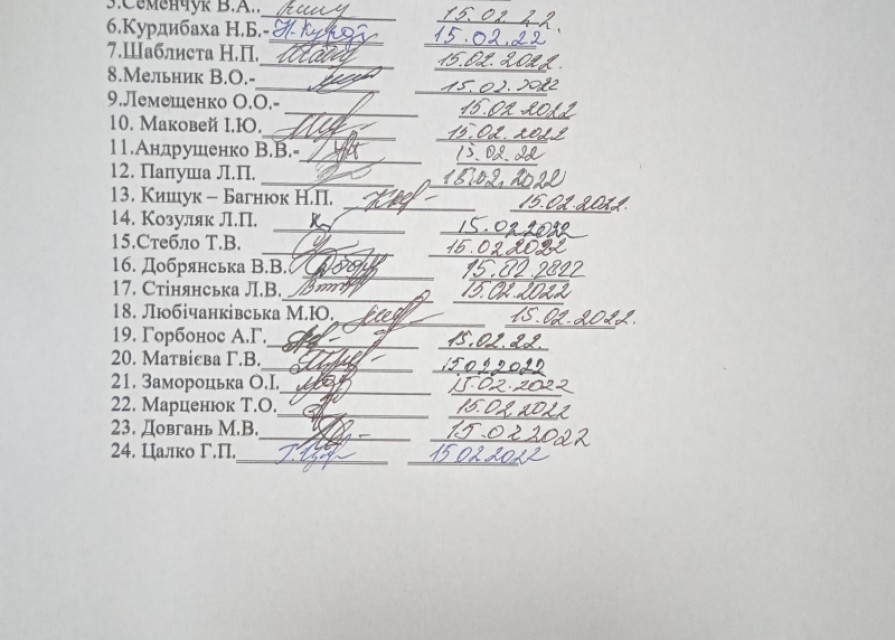 5.Семенчук В.А.. 15.02.22.
6.Курдибаха Н.Б.- 15.02.22
7.Шаблиста Н.П. 15.02.2022.
8.Мельник В.О.- 15.02.2022
9.Лемещенко О.О.- 15.02.2022
10. Маковей І.Ю. 15.02.2022
11.Андрущенко В.В.- 15.02.22
12. Папуша Л.П. 15.02.2022
13. Кищук – Багнюк Н.П. 15.02.2022.
14. Козуляк Л.П. 15.02.2022
15.Стебло Т.В. 15.02.2022
16. Добрянська В.В. 15.02.2022
17. Стінянська Л.В. 15.02.2022
18. Любічанківська М.Ю. 15.02.2022.
19. Горбонос А.Г. 15.02.22.
20. Матвієва Г.В. 15022022
21. Замороцька О.І. 15.02.2022
22. Марценюк Т.О. 15.02.2022
23. Довгань М.В. 15.02.2022
24. Цалко Г.П. 15022022